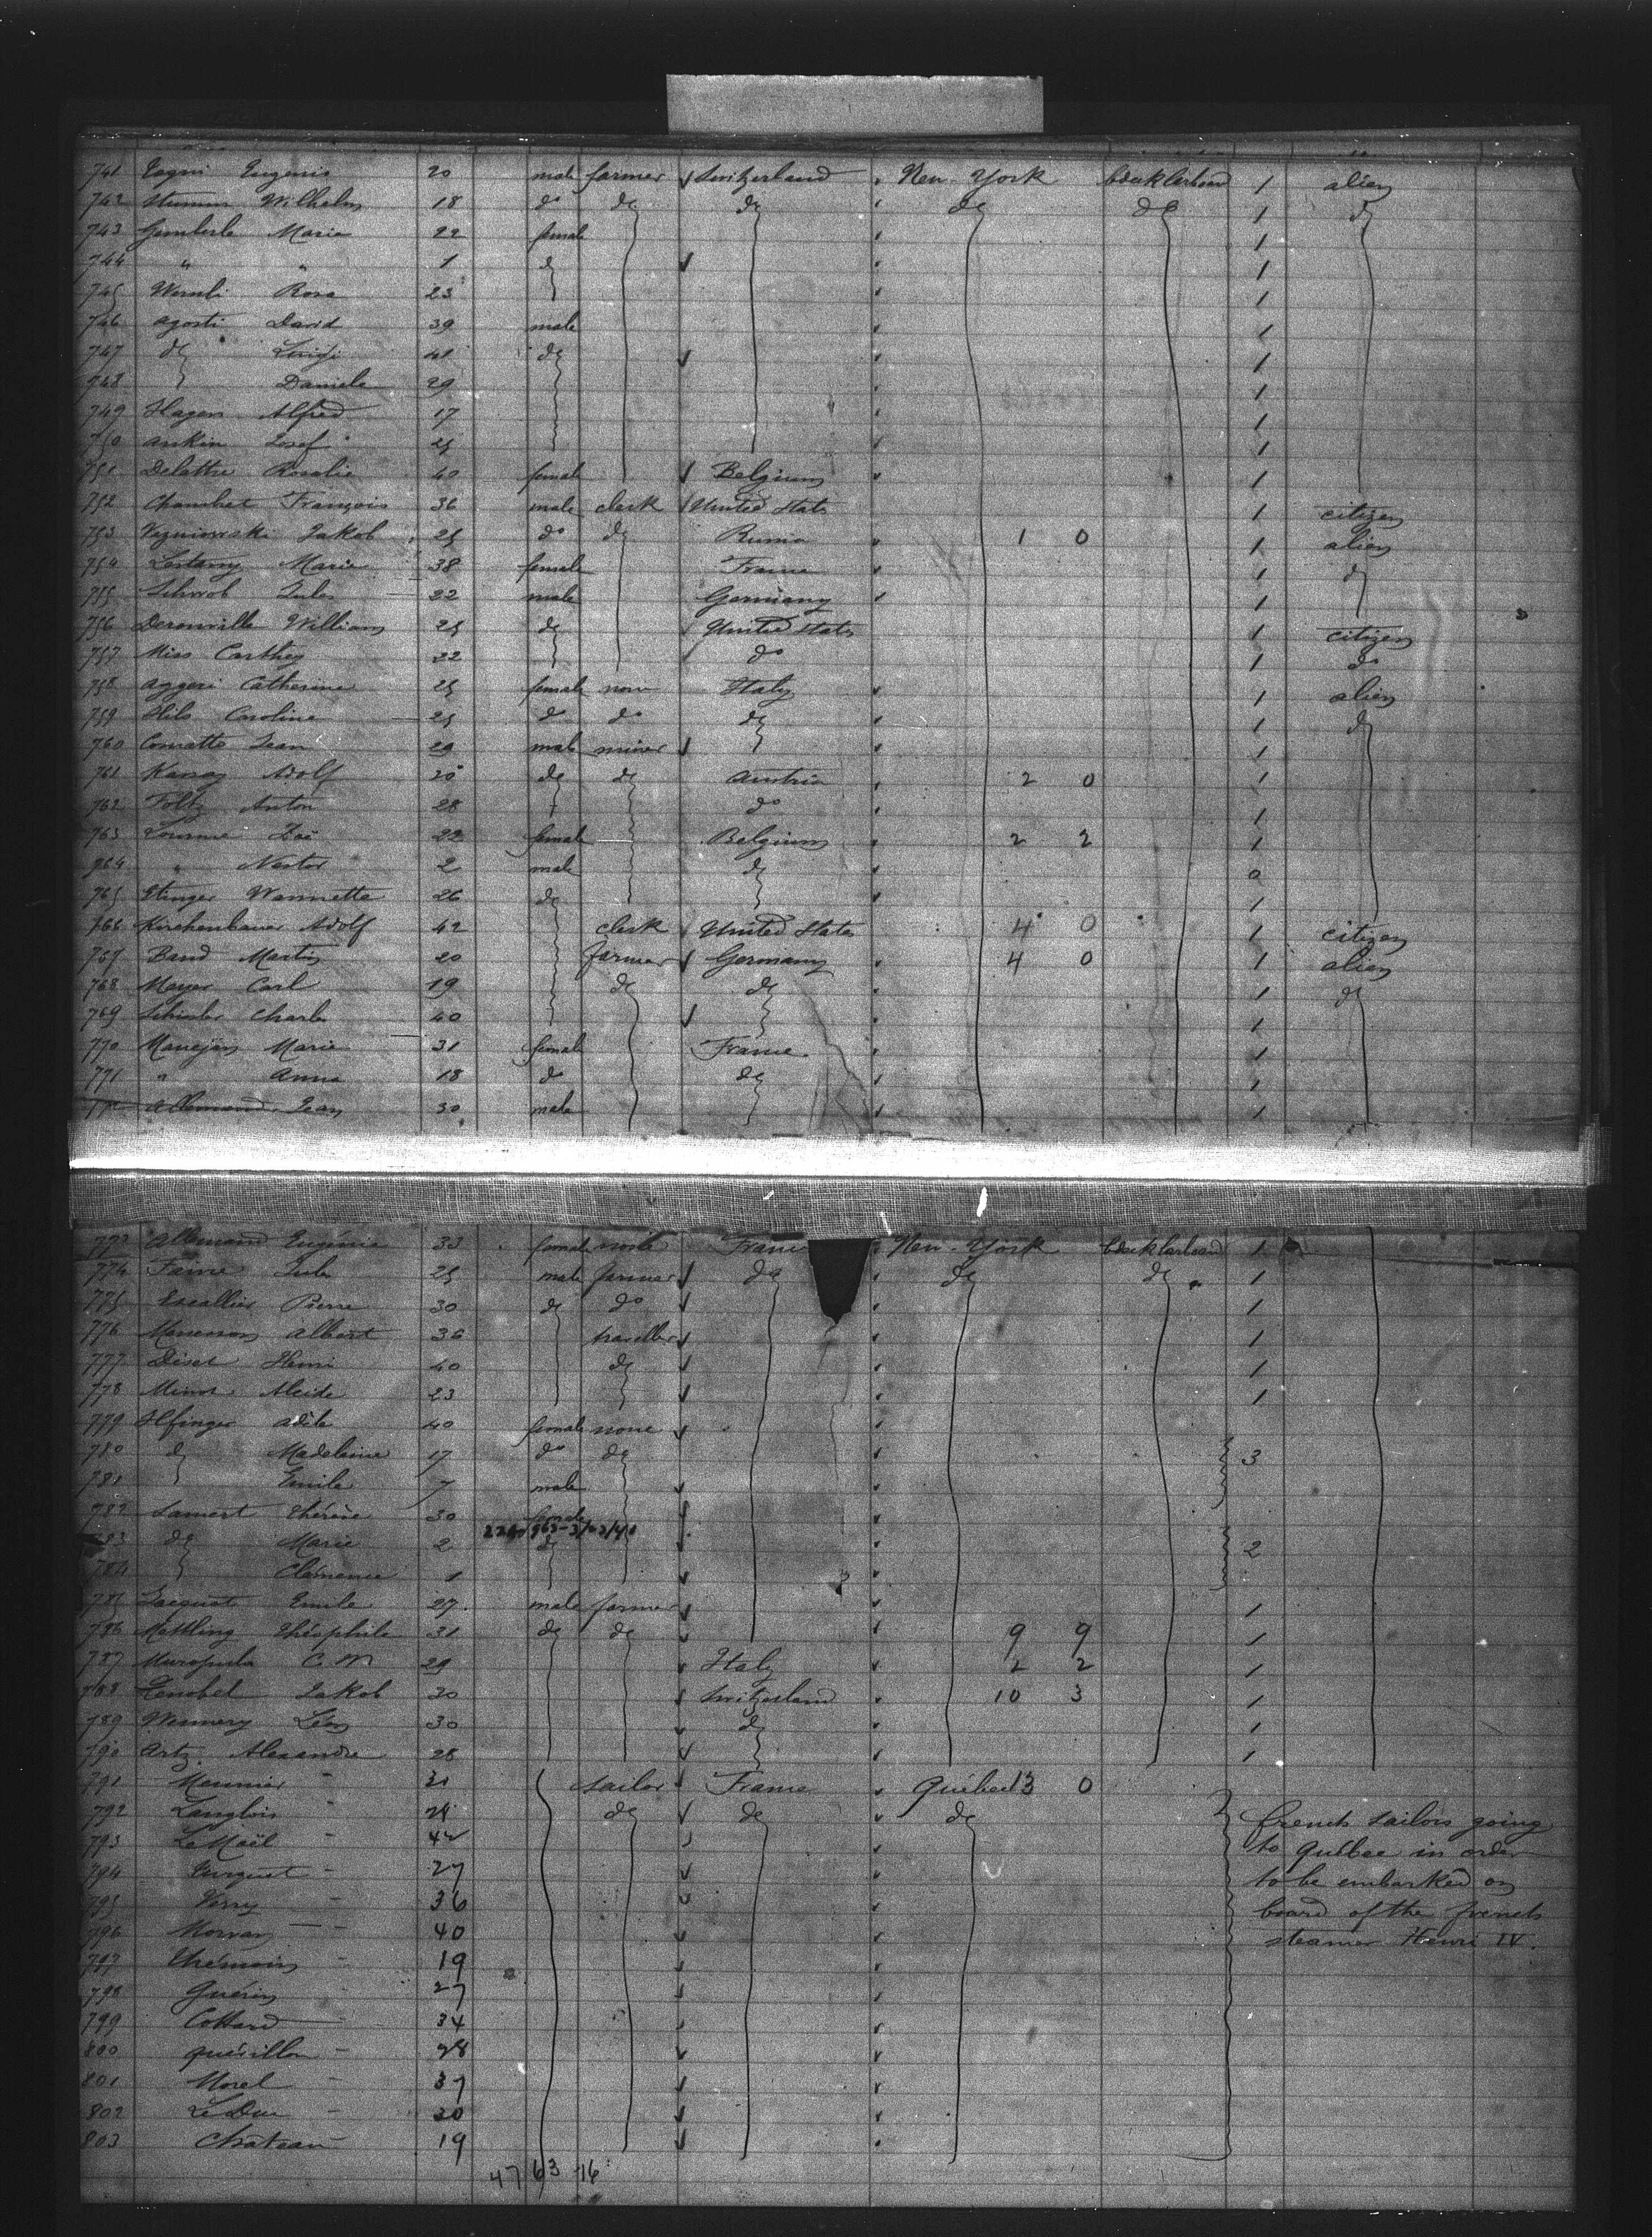 741 Eugenio 20 male farmer Switzerland New-York 1 alien
742 Stumm Wilhelm 18 do do do do do 1 do
743 Gemberle Marie 22 female 1
744 " " 1 do 1
745 Wernli Rosa 23 1
746 Agosti David 39 male 1
747 do Luigi 41 do 1
748 Daniele 29 1
749 Hagen Alfred 17 1
750 Josef 25 1
751 Delattre Rosalie 40 female Belgium 1
752 Chambet François 36 male clerk United States 1 citizen
753 Jakob 25 do do Russia 1 0 1 alien
754 Marie 38 female France 1 do
755 Schwob Jules 22 male Germany 1
756 Deronville William 25 do United States 1 citizen
757 Miss Carthey 22 do 1 do
758 Aggeri Catherine 25 female none Italy 1 alien
759 Hils Caroline 25 do do do 1 do
760 Jean 29 male miner 1
761 Adolf 20 do do Austria 2 0 1
762 Foltz Anton 28 do 1
763 Zoé 22 female Belgium 2 2 1
764 " Nestor 2 male do 0
765 Etinger Wannette 26 do 1
766 Kirchenbauer Adolf 42 clerk United States 4 0 1 citizen
767 Band Martin 20 farmer Germany 4 0 1 alien
768 Meyer Carl 19 do do 1 do
769 Charles 40 1
770 Manejan Marie 31 female France 1
771 " Anna 18 do do 1
Allemand Jean 30 male 1
773 Allemand Eugénie 33 female none France New-York 1
774 Faivre Jules 25 male farmer do do do 1
775 Escallier Pierre 30 do do 1
776 Albert 36 traveller 1
777 Henri 40 do 1
778 Minot Alcide 23 1
779 Ilfinger Adèle 40 female none
780 do Madeleine 17 do do 3
781 Emile 7 male
782 Lamert Thérèse 30 female
783 do Marie 2 do 2
784 Clémence 1
785 Jacquot Emile 27 male farmer 1
786 Théophile 31 do do 9 9 1
787 C. M 29 Italy 2 2 1
788 Jakob 30 Switzerland 10 3 1
789 Léon 30 do 1
790 Artz Alexandre 28 1
791 Meunier 31 sailor France Québec 13 0
792 Langlois 24 do do do french sailors going
793 Le Maël 42 to Québec in order
794 27 to be embarked on
795 Verry 36 board of the french
796 Morvan 40 steamer Henri IV.
797 19
798 Guérin 27
799 Cottard 34
800 Quérillon 28
801 Morel 37
802 Le Duc 30
803 Château 19
47 63 16